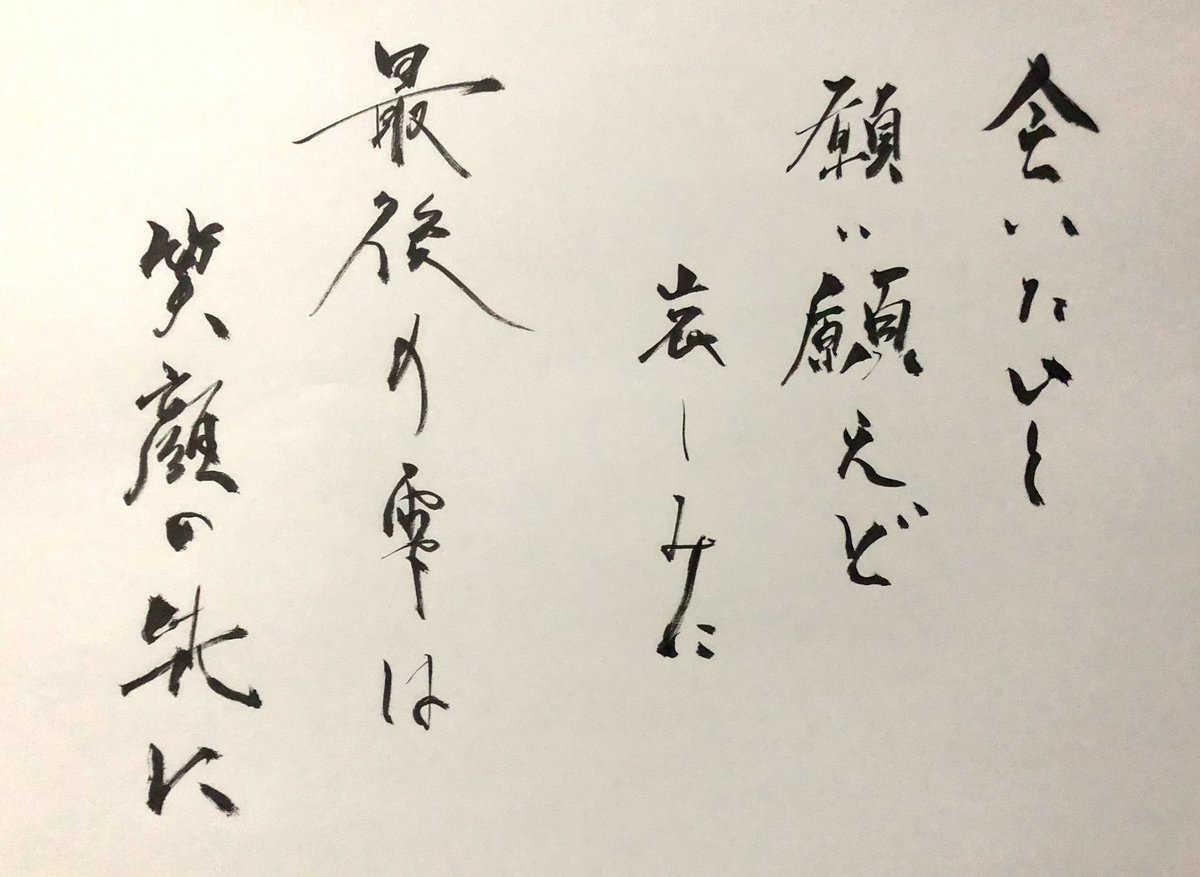 会いたいと
願い願えど
哀しみに
最後の雫は
笑顔の先に